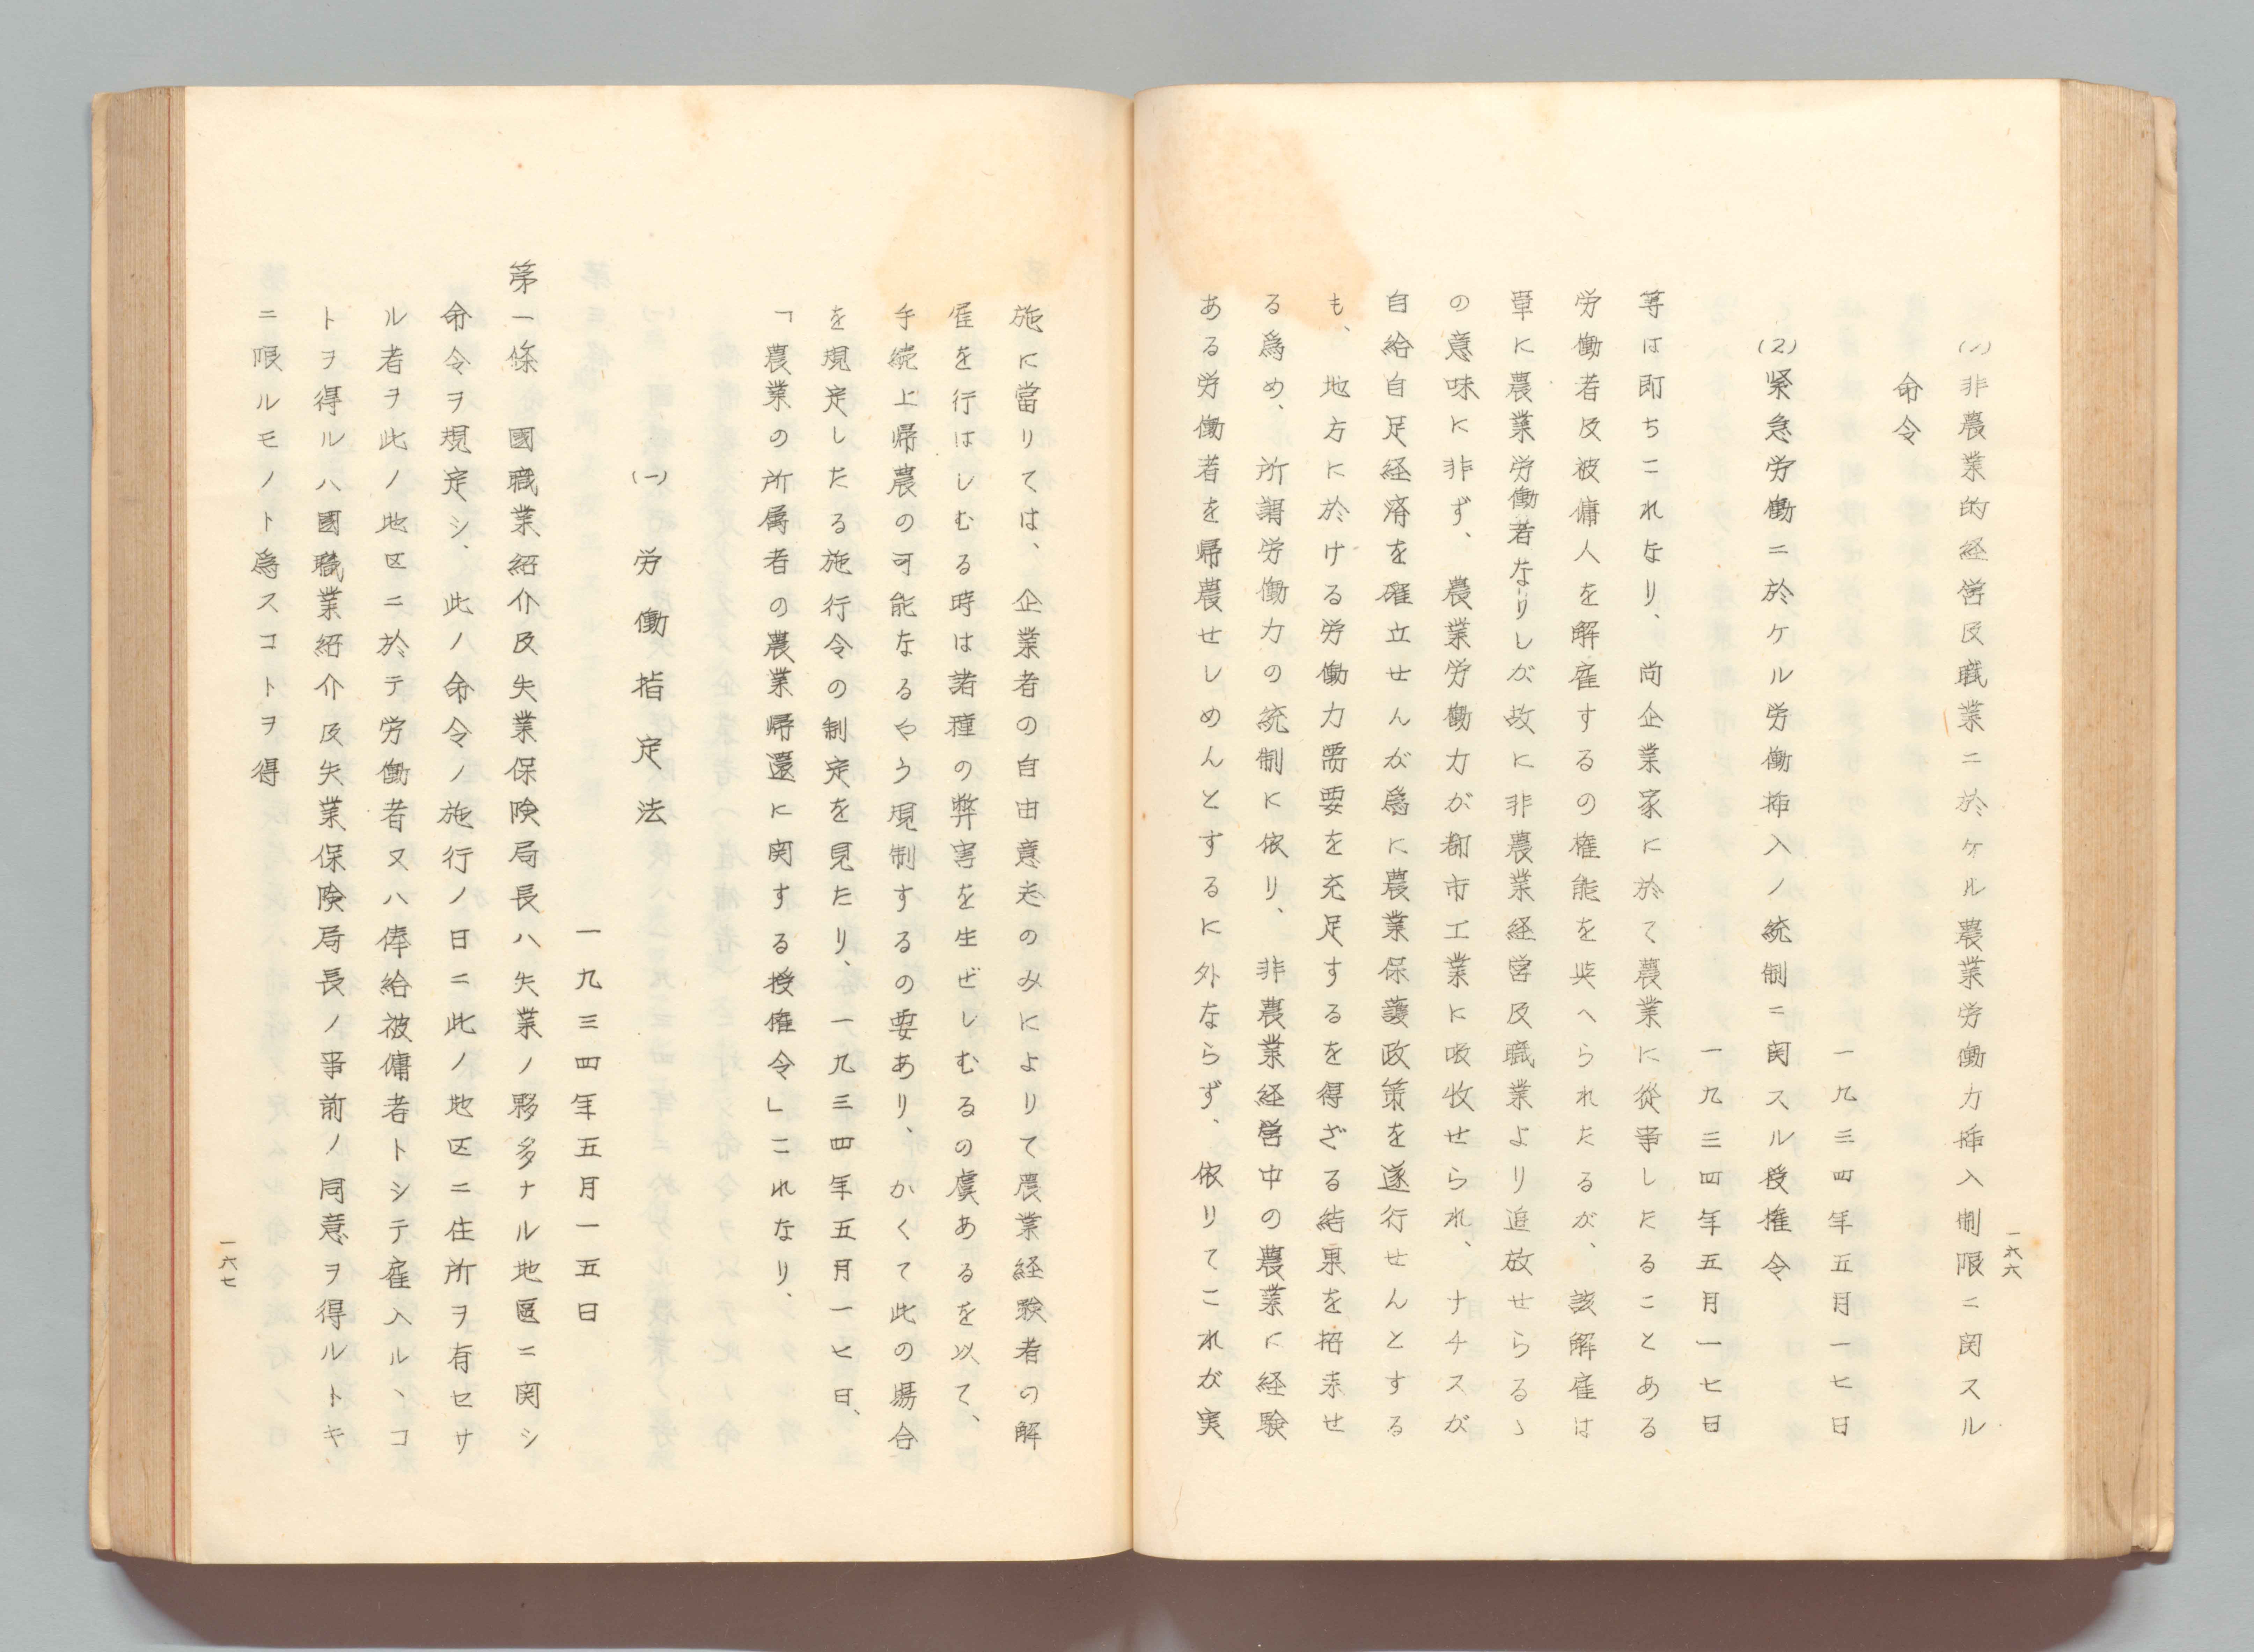 (1)非農業的経営及職業ニ於ケル農業労働力挿入制限ニ関スル
命令
一九三四年五月一七日
(2)緊急労働ニ於ケル労働挿入ノ統制ニ関スル授権令
一九三四年五月一七日
等は即ちこれなり、尚企業家に於て農業に従事したることある
労働者及被傭人を解雇するの権能を与へられたるが、該解雇は
単に農業労働者なりしが故に非農業経営及職業より追放せらるゝ
の意味に非ず、農業労働力が都市工業に吸收せられ、ナチスが
自給自足経済を確立せんが為に農業保護政策を遂行せんとする
も、地方に於ける労働力需要を充足するを得ざる結果を招来せ
る為め、所謂労働力の統制に依り、非農業経営中の農業に経験
ある労働者を帰農せしめんとするに外ならず、依りてこれが実
一六六
施に當りては、企業者の自由意志のみによりて農業経験者の解
雇を行はしむる時は諸種の弊害を生ぜしむるの虞あるを以て、
手続上帰農の可能なるやう規制するの要あり、かくて此の場合
を規定したる施行令の制定を見たり、一九三四年五月一七日、
「農業の所属者の農業帰還に関する授権令」これなり、
(一) 労働指定法
一九三四年五月一五日
第一條 國職業紹介及失業保険局長ハ失業ノ夥多ナル地區ニ関シ
命令ヲ規定シ、此ノ命令ノ施行ノ日ニ此ノ地区ニ住所ヲ有セサ
ル者ヲ此ノ地区ニ於テ労働者又ハ俸給被傭者トシテ雇入ルヽコ
トヲ得ルハ國職業紹介及失業保険局長ノ事前ノ同意ヲ得ルトキ
ニ限ルモノト為スコトヲ得
一六七